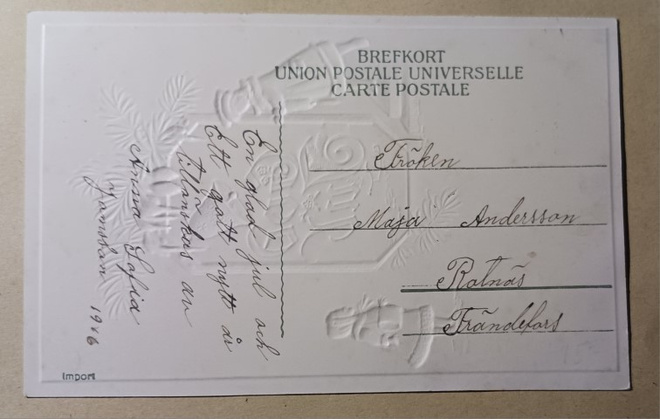 BREFKORT
UNION POSTALE UNIVERSELLE
CARTE POSTALE
Fröken
Maja Andersson
Rotnäs
Frändefors
En glad jul och
Ett gott nytt år
tillönskas av
Anna Sofia
1916
Import